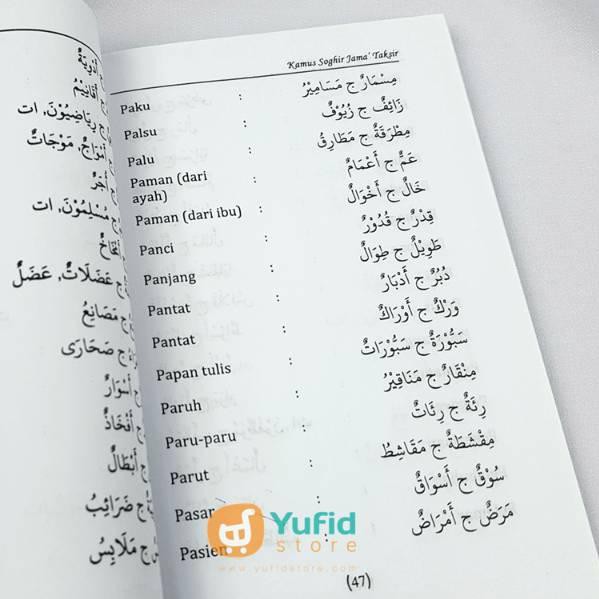 Kamus Soghir Jama' Taksir
Paku : مِسْمَارٌ ج مَسَامِيْرُ
Palsu : زَائِفٌ ج زُيُوْفٌ
Palu : مِطْرَقَةٌ ج مَطَارِقُ
Paman (dari ayah) : عَمٌّ ج أَعْمَامٌ
Paman (dari ibu) : خَالٌ ج أَخْوَالٌ
Panci : قِدْرٌ ج قُدُوْرٌ
Panjang : طَوِيْلٌ ج طِوَالٌ
Pantat : دُبُرٌ ج أَدْبَارٌ
Pantat : وَرْكٌ ج أَوْرَاكٌ
Papan tulis : سَبُّوْرَةٌ ج سَبُّوْرَاتٌ
Paruh : مِنْقَارٌ ج مَنَاقِيْرُ
Paru-paru : رِئَةٌ ج رِئَاتٌ
Parut : مِقْشَطَةٌ ج مَقَاشِطُ
Pasar : سُوْقٌ ج أَسْوَاقٌ
Pasien : مَرَضٌ ج أَمْرَاضٌ
(47)
ج أَدْوِيَةٌ
ج أَقَانِيْمُ
ج رِيَاضِيُّوْنَ، ات
أَمْوَاجٌ، مَوْجَاتٌ
ج أُجَرٌ
ج مُسْلِمُوْنَ، ات
ج عَضَلَاتٌ، عَضَلٌ
ج مَصَانِعُ
ج صَحَارَى
ج أَسْوَارٌ
ج أَفْخَاذٌ
ج أَبْطَالٌ
ج ضَرَائِبُ
ج مَلَابِسُ
Yufid
store
www.yufidstore.com